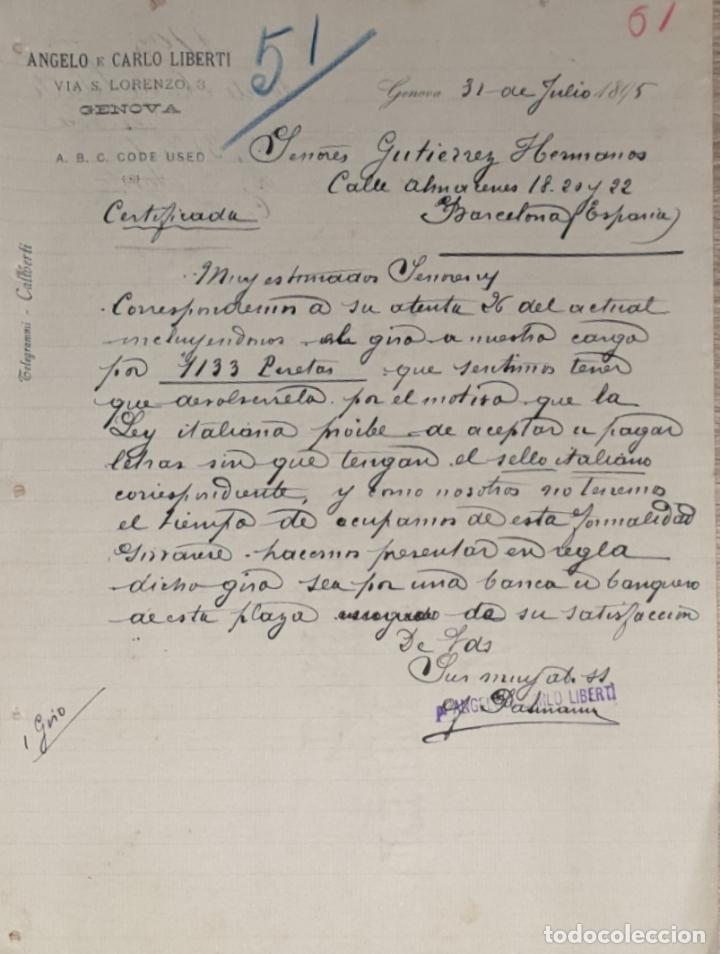 51
61
ANGELO E CARLO LIBERTI
VIA S. LORENZO, 3
GENOVA
A. B. C. CODE USED
Telegrammi - Caliberti
Genova 31 de Julio 1895
Señores Gutierrez Hermanos
Calle Almacenes 18. 20 y 22
Certificada
Barcelona (España)
Muy estimados Señores
Correspondemos a su atenta 26 del actual
incluyendonos la gira a nuestro cargo
por 1133 Pesetas que sentimos tener
que devolversela por el motivo que la
Ley italiana proibe de aceptar u pagar
letras sin que tengan el sello italiano
correspondiente, y como nosotros no tenemos
el tiempo de ocuparnos de esta formalidad
sirvanse hacernos presentar en regla
dicho giro sea por una banca u banquero
de esta plaza de su satisfacción
De Vds
Sus muy at. ss.
p. ANGELO LIBERTI
1 Giro
todocoleccion